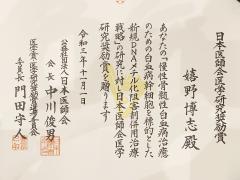 日本医師会医学研究奨励賞
嬉野博志殿
あなたの「慢性骨髄性白血病治療
のための白血病幹細胞を標的とした
新規DNAメチル化阻害剤併用治療
戦略」の研究に対し日本医師会医学
研究奨励賞を贈ります
令和三年十一月一日
公益社団法人日本医師会
会長 中川俊男
医学賞・医学研究奨励賞選考委員会
委員長 門田守人